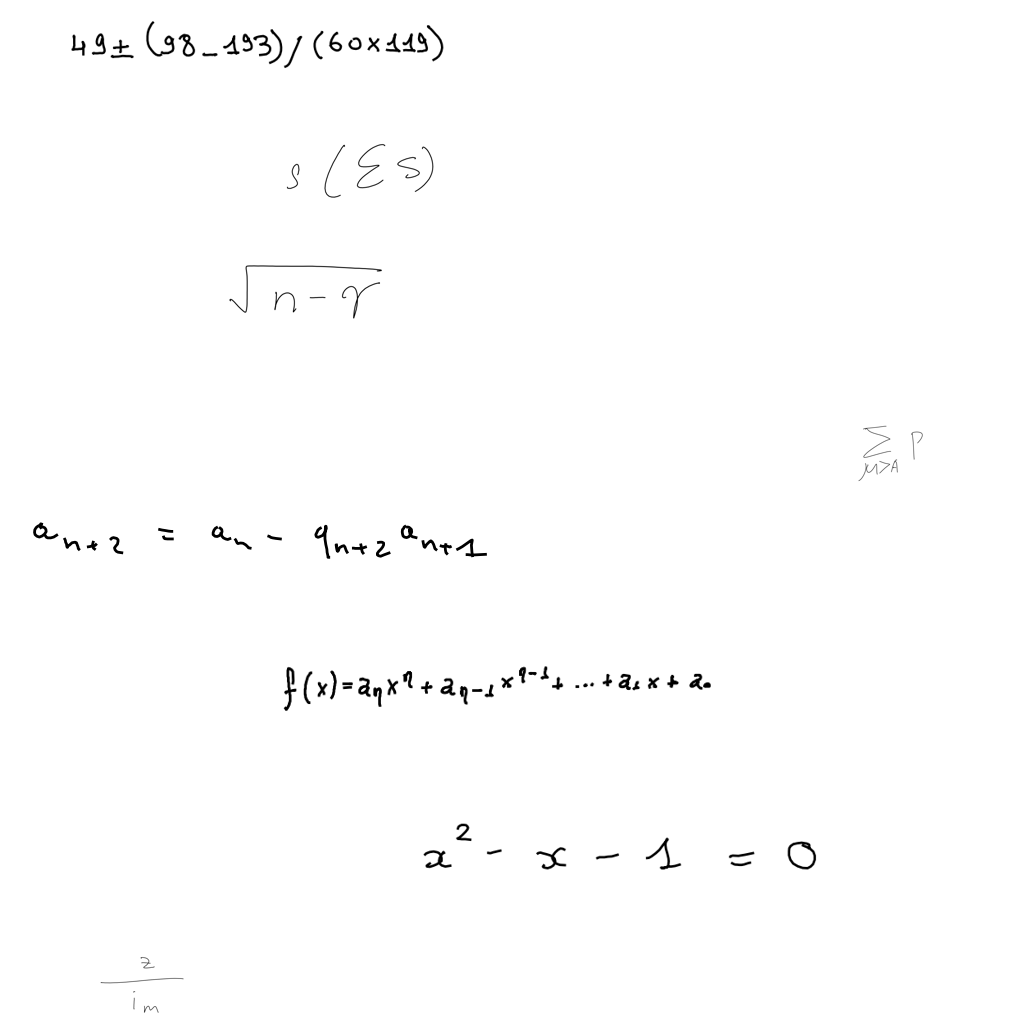 49 ± (98 - 193) / (60 × 119)
s (Σ s)
√(n - γ)
∑_{μ>A} p
a_{n+2} = a_n - q_{n+2} a_{n+1}
f(x) = a_η x^η + a_{η-1} x^{η-1} + ... + a_1 x + a_0
x^2 - x - 1 = 0
z / i_m